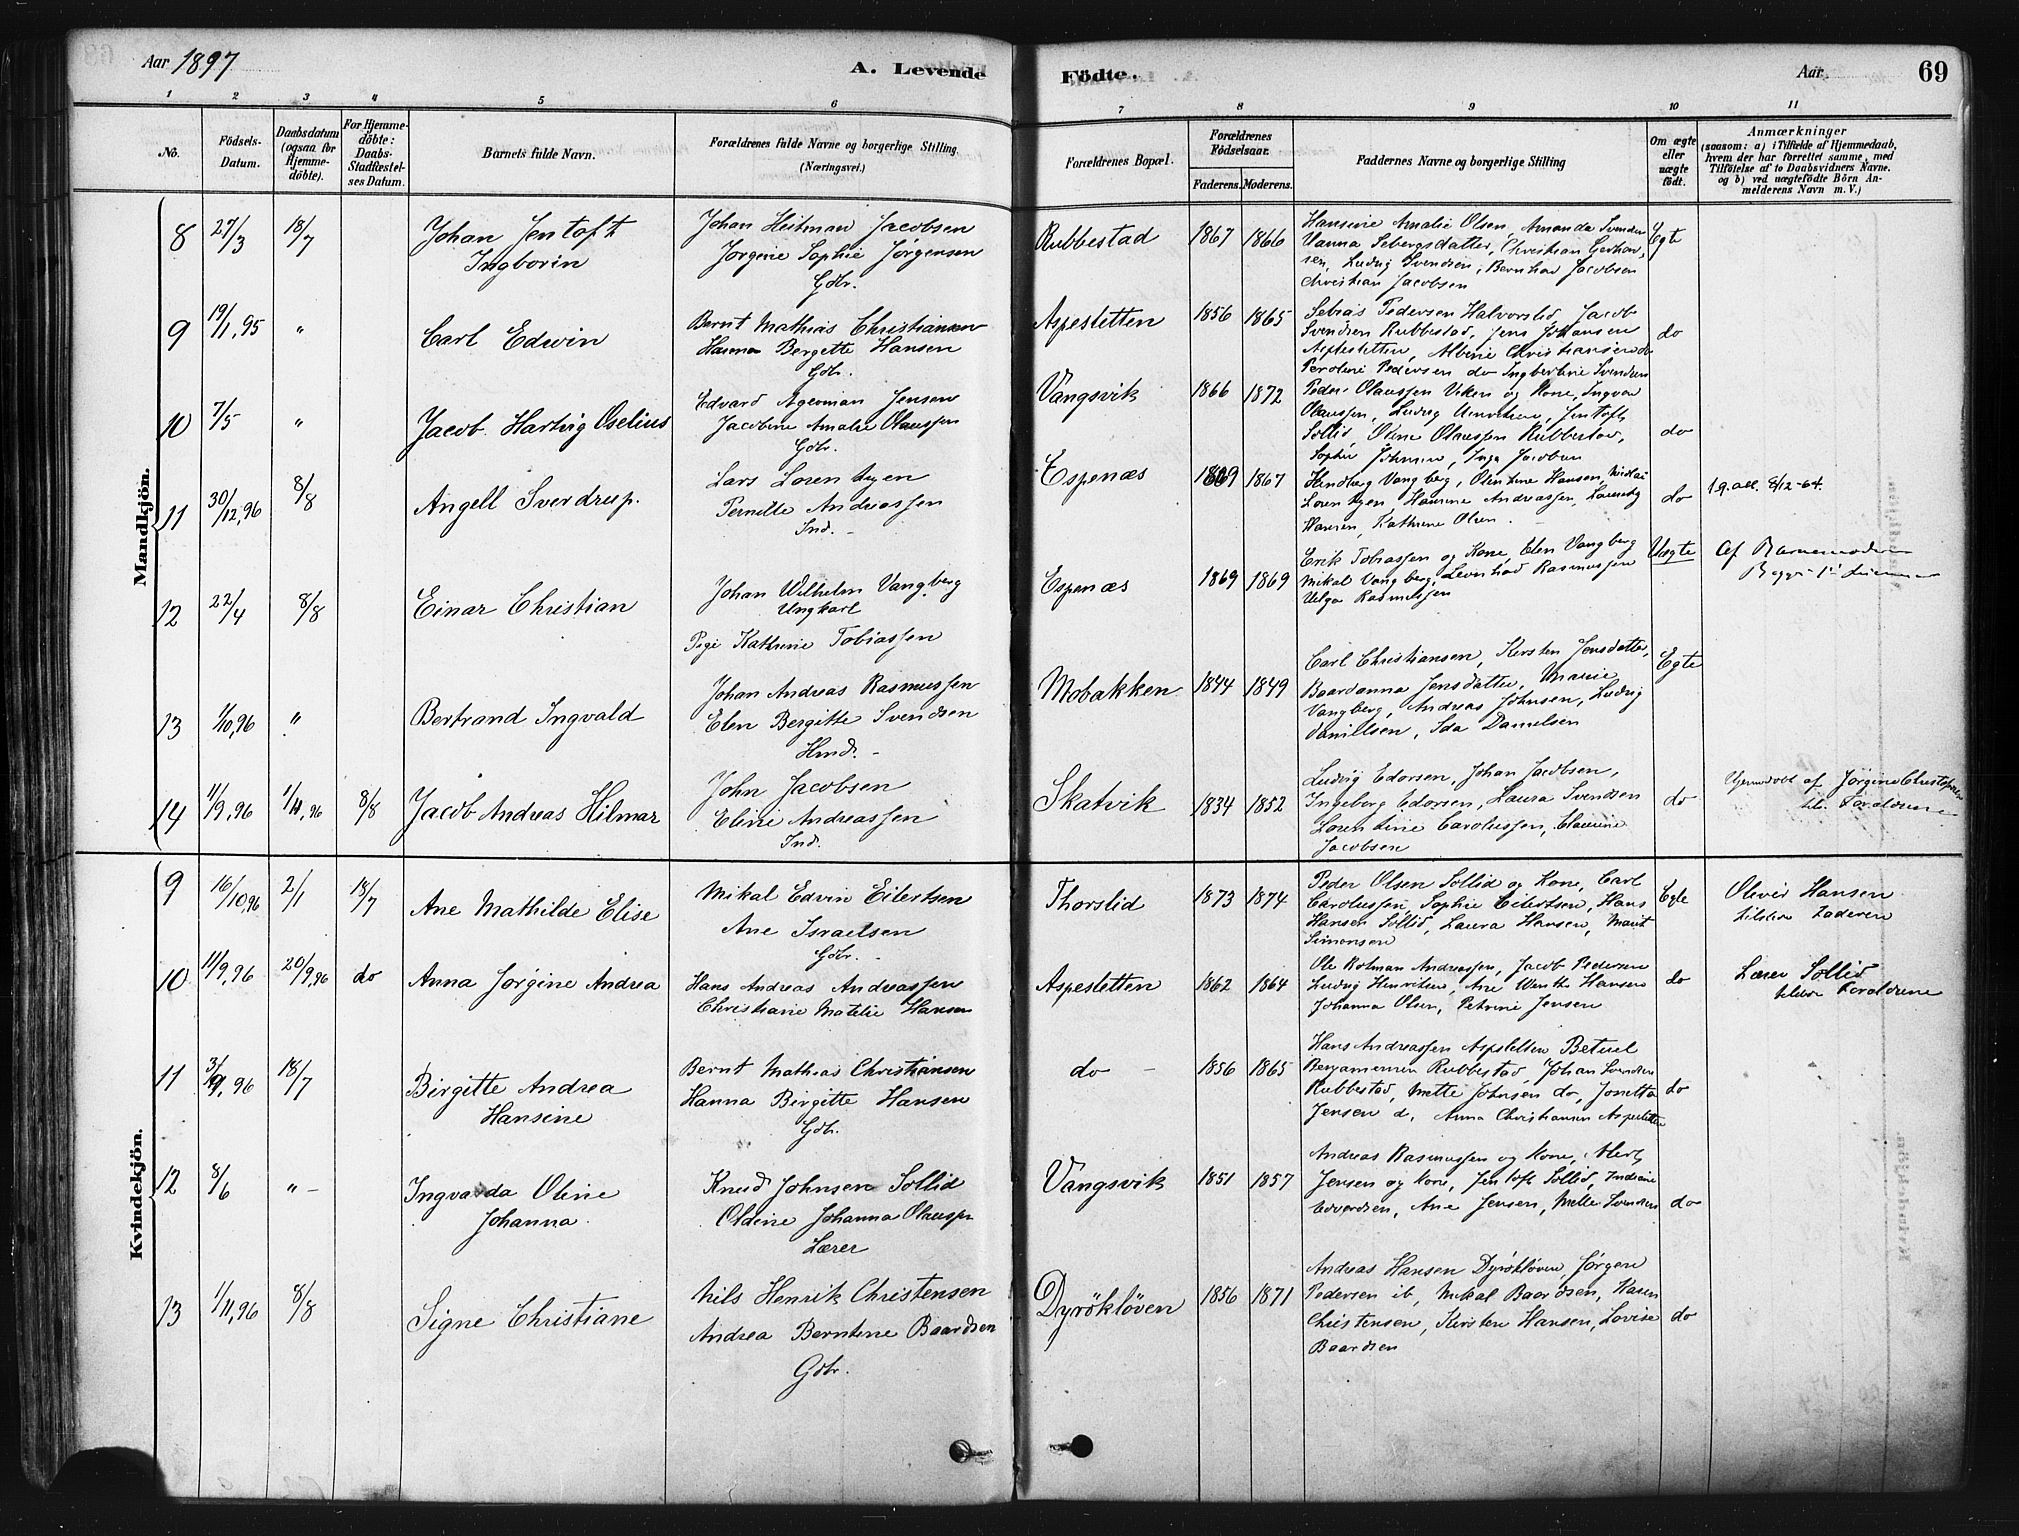 Aar 1897
A. Levende
Födte.
Aar
69
1 2 3 4 5 6 7 8 9 10 11
No.
Födsels-Datum.
Daabsdatum (ogsaa for Hjemme-döbte).
For Hjemme-döbte: Daabs-Stadfæstel-ses Datum.
Barnets fulde Navn.
Forældrenes fulde Navne og borgerlige Stilling (Næringsvei.)
Forældrenes Bopæl.
Forældrenes Födselsaar.
Faderens. Moderens.
Faddernes Navne og borgerlige Stilling
Om ægte eller uægte födt.
Anmærkninger
(saasom: a) i Tilfælde af Hjemmedaab, hvem der har forrettet samme, med Tilföielse af to Daabsvidners Navne, og b) ved uægtefödte Börn An-melderens Navn m. V.)
Mandkjön.
8 27/3 18/7 Johan Jentoft Ingborin
Johan Heitman Jacobsen
Jørgine Sophie Jørgensen
Gdbr.
Rubbestad 1867 1866
Hansine Amalie Olsen, Amanda Svendsen
Vanna Sebergsdatter, Christian Gerhard-
sen, Ludvig Svendsen, Bernhar Jacobsen
Christian Jacobsen
Egte
9 19/11,95 " Carl Edwin
Bernt Mathias Christiansen
Hanna Bergette Hansen
Gdbr.
Aspesletten 1856 1865
Sebias Pedersen Halvorslid, Jacob
Svendsen Rubbestad, Jens Johansen
Aspesletten, Albine Christiansen do
Peroline Pedersen do Ingberline Svendsen
do
10 7/5 " Jacob Hartvig Oselius
Edvard Agerman Jensen
Jacobine Amalie Olaussen
Gdbr.
Vangsvik 1866 1872
Peder Olaussen Viken og Kone, Ingvar
Olaussen, Ludvig Henriksen, Jentoft
Sollid, Oline Olaussen Rubbestad,
Sophie Johnsen, Inga Jacobsen
do
11 30/12,96 8/8 Angell Sverdrup.
Lars Lorentzen
Pernille Andreassen
Ind.
Espenæs 1869 1867
Hendberg Vangberg, Olentine Hansen, Nicolai
Lorentzen Hansine Andreassen, Lorents
Hansen, Kathrine Olsen
do
l.g. att. 8/12-64.
12 22/4 8/8 Einar Christian
Johan Wilhelm Vangberg
Ungkarl
Pige Kathrine Tobiassen
Espenæs 1869 1869
Erik Tobiassen og Kone, Elen Vangberg
Mikal Vangberg, Leonhard Rasmussen
Helga Rasmussen
Uægte
Af Barnemoderen
Begges 1ste
13 1/10,96 " Bertrand Ingvald
Johan Andreas Rasmussen
Elen Bergitte Svendsen
Hmd.
Mobakken 1844 1849
Carl Christiansen, Kersten Jensdatter,
Baardanna Jensdatter, Marie
Vangberg, Andreas Johnsen, Ludvig
Danillsen, Ida Danielsen
Egte
14 11/9,96 1/11,96 8/8 Jacob Andreas Hilmar
John Jacobsen
Eline Andreassen
Ind.
Skatvik 1834 1852
Ludvig Edorsen, Johan Jacobsen,
Ingeborg Edorsen, Laura Svendsen
Lorentine Carolussen, Claurine
Jacobsen
do
Hjemmedöbt af Jørgine Christophersen
til. Foraldrene
Kvindekjön.
9 16/10,96 2/1 18/7 Ane Mathilde Elise
Mikal Edvin Eilertsen
Ane Israelsen
Gdbr.
Thorslid 1873 1874
Peder Olsen Sollid og Kone, Carl
Carolussen, Sophie Eilertsen, Hans
Hansen Sollid, Laura Hansen, Marit
Simonsen
Egte
Oliver Hansen
tilstede Faderen
10 11/9,96 20/9,96 do Anna Jørgine Andrea
Hans Andreas Andreassen
Christiane Matilie Hansen
Aspesletten 1862 1864
Ole Rotman Andreassen, Jacob Pedersen
Ludvig Henriksen, Ane Hansen
Johanna Olsen, Petrine Jensen
do
Lærer Sollid
tilstede Foraldrene
11 96 18/7 Birgitte Andrea Hansine
Bernt Mathias Christiansen
Hanna Birgitte Hansen
Gdbr.
do 1856 1865
Hans Andreassen Aspesletten Betuel
Benjaminsen Rubbestad, Johan Svendsen
Rubbestad, Mette Johnsen do, Jonetta
Jensen d, Anna Christiansen Aspesletten
do
12 8/6 " Ingvarda Oline Johanna
Knud Johnsen Sollid
Oldine Johanna Olaussen
Lærer
Vangsvik 1851 1857
Andreas Rasmussen og Kone, Albert
Jensen og Kone, Jentoft Sollid, Indiane
Edvardsen, Ane Jensen, Mette Svendsen
do
13 1/11,96 8/8 Signe Christiane
Nils Henrik Christensen
Andrea Berntine Baardsen
Gdbr.
Dyrökløven 1856 1871
Andreas Hansen Dyrökløven, Jørgen
Pedersen ib, Mikal Baardsen, Karen
Christensen, Kersten Hansen, Lovise
Baardsen
do